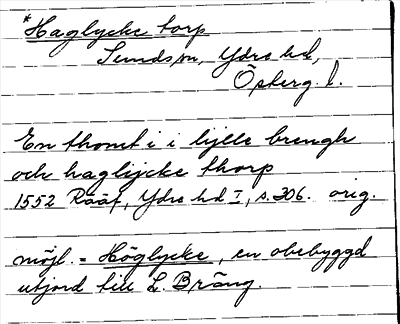 *Haglycke torp
Sunds sn, Ydre hd,
Österg. l.
En thomt i i lylle brengh
och haglijcke thorp
1552 Rääf, Ydre hd I, s. 306. orig.
möjl. = Höglycke, en obebyggd
utjord till L. Bräng.